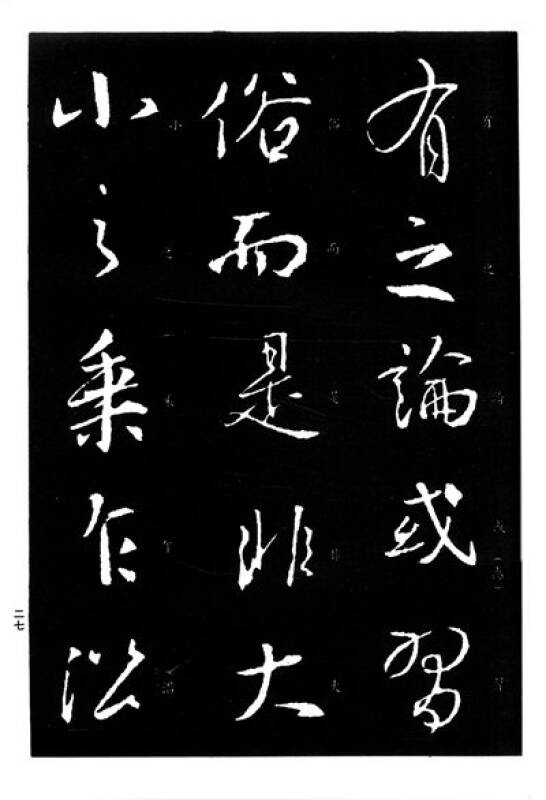 有之論或習
俗而是非大
小之乘乍沿
二七